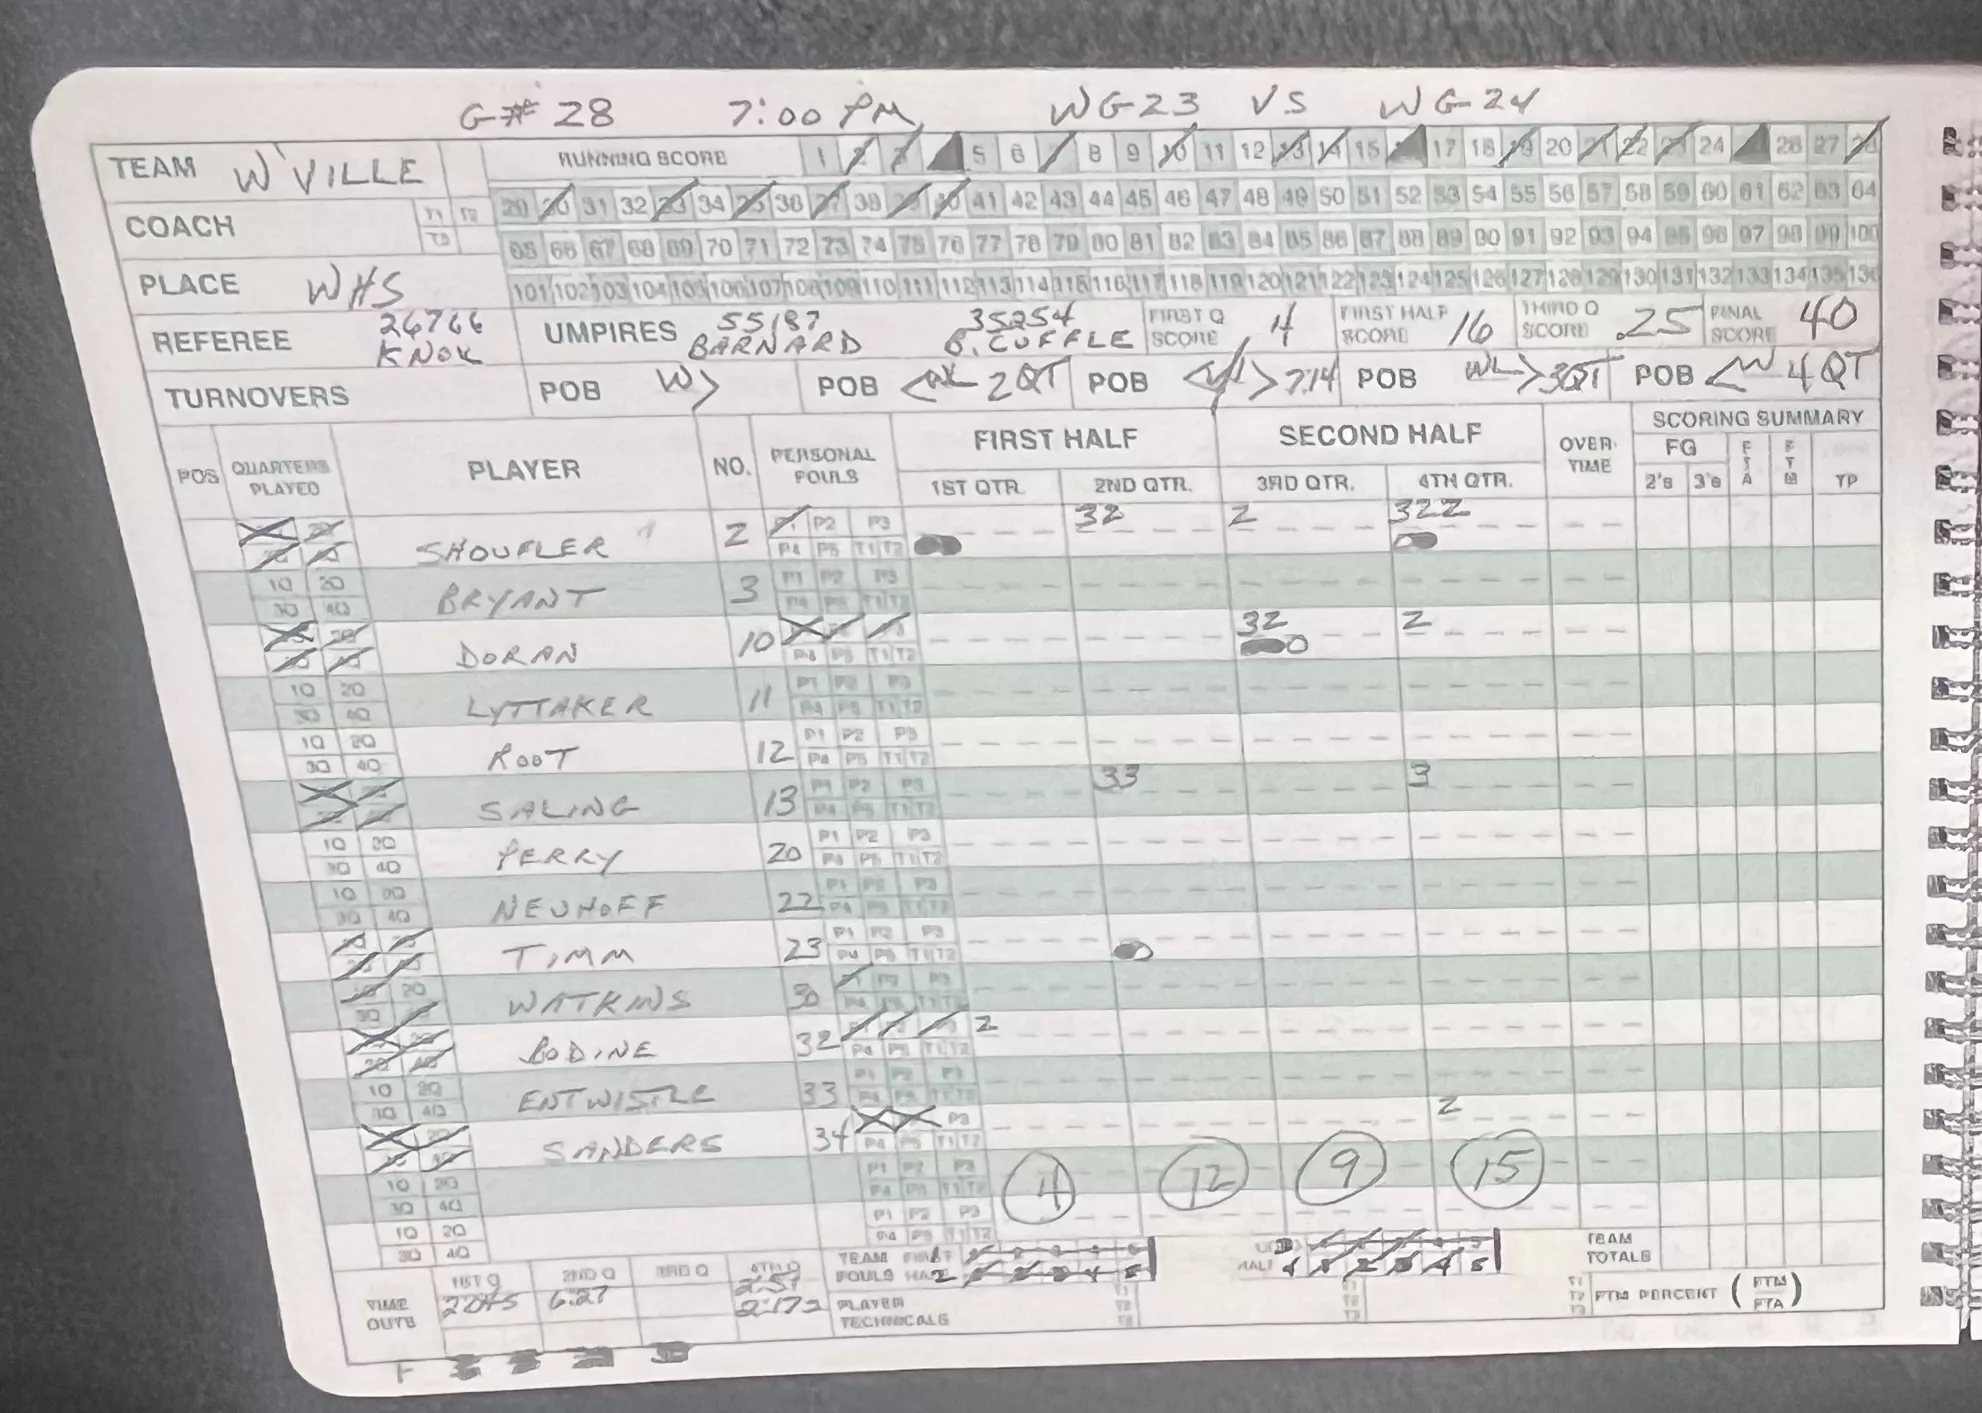 G# 28 7:00 PM WG-23 VS WG-24
TEAM W'VILLE RUNNING SCORE 1 2 3 5 6 7 8 9 10 11 12 13 14 15 17 18 19 20 21 22 23 24 26 27 28
COACH T1 T2 T3 29 30 31 32 33 34 35 36 37 38 39 40 41 42 43 44 45 46 47 48 49 50 51 52 53 54 55 56 57 58 59 60 61 62 63 64
65 66 67 68 69 70 71 72 73 74 75 76 77 78 79 80 81 82 83 84 85 86 87 88 89 90 91 92 93 94 95 96 97 98 99 100
PLACE WHS 101 102 103 104 105 106 107 108 109 110 111 112 113 114 115 116 117 118 119 120 121 122 123 124 125 126 127 128 129 130 131 132 133 134 135 136
REFEREE 26766 KNOX UMPIRES 55187 BARNARD 35254 B. CUFFLE FIRST Q SCORE 4 FIRST HALF SCORE 16 THIRD Q SCORE 25 FINAL SCORE 40
TURNOVERS POB W> POB <WL 2QT POB 7:14 POB WL> 3QT POB <W 4QT
POS QUARTERS PLAYED PLAYER NO. PERSONAL FOULS FIRST HALF SECOND HALF OVER-TIME SCORING SUMMARY
1ST QTR. 2ND QTR. 3RD QTR. 4TH QTR. FG 2's 3's FTA FTM TP
SHOUFLER 2 P1 P2 P3 32 2 322
P4 P5 T1 T2
1Q 2Q BRYANT 3 P1 P2 P3
3Q 4Q P4 P5 T1 T2
DORAN 10 32 2
P4 P5 T1 T2
1Q 2Q LYTTAKER 11 P1 P2 P3
3Q 4Q P4 P5 T1 T2
1Q 2Q ROOT 12 P1 P2 P3
3Q 4Q P4 P5 T1 T2
SALING 13 P1 P2 P3 33 3
P4 P5 T1 T2
1Q 2Q PERRY 20 P1 P2 P3
3Q 4Q P4 P5 T1 T2
1Q 2Q NEUHOFF 22 P1 P2 P3
3Q 4Q P4 P5 T1 T2
TIMM 23 P1 P2 P3
P4 P5 T1 T2
2Q WATKINS 30 P1 P2 P3
3Q P4 P5 T1 T2
BODINE 32 2
P4 P5 T1 T2
1Q 2Q ENTWISTLE 33 P1 P2 P3
3Q 4Q P4 P5 T1 T2
SANDERS 34 P3 2
P4 P5 T1 T2
1Q 2Q P1 P2 P3 4 12 9 15
3Q 4Q P4 P5 T1 T2
1Q 2Q P1 P2 P3
3Q 4Q P4 P5 T1 T2
TEAM FOULS TEAM TOTALS
TIME OUTS 1ST Q 2ND Q 6:27 3RD Q 4TH Q 2:51
PLAYER TECHNICALS T1 T2 T3 FTM PERCENT (FTM/FTA)